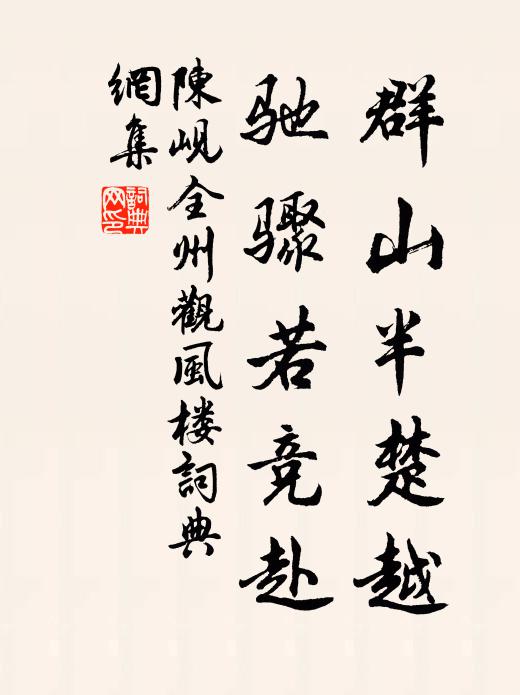 群山半楚越
驰骤若竞赴
陳岘全州觀風楼詞典
網集
詞典
网印